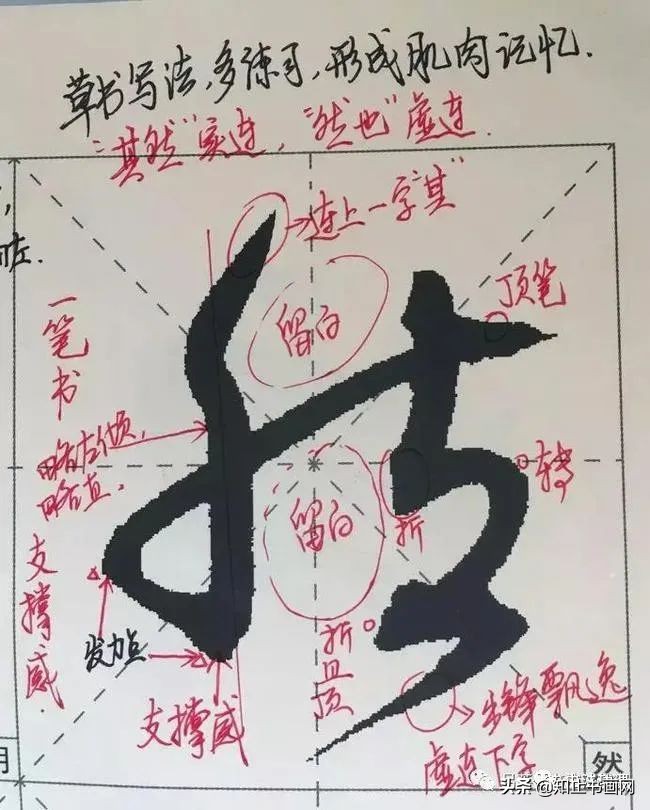 草书写法,多练习,形成肌肉记忆.
"其然"实连,"然也"虚连.
左.
连上一字"其"
留白
顶笔
一笔书
略左倾,
略直.
转
留白
折
支撑感.
发力点
折且顶
支撑感
出锋飘逸
虚连下字
明
然
头条@知正书画网